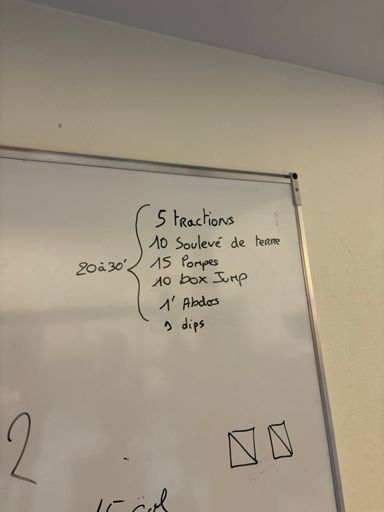 5 tractions
10 Soulevé de terre
20 à 30'
15 Pompes
10 box Jump
1' Abdos
dips
2
15